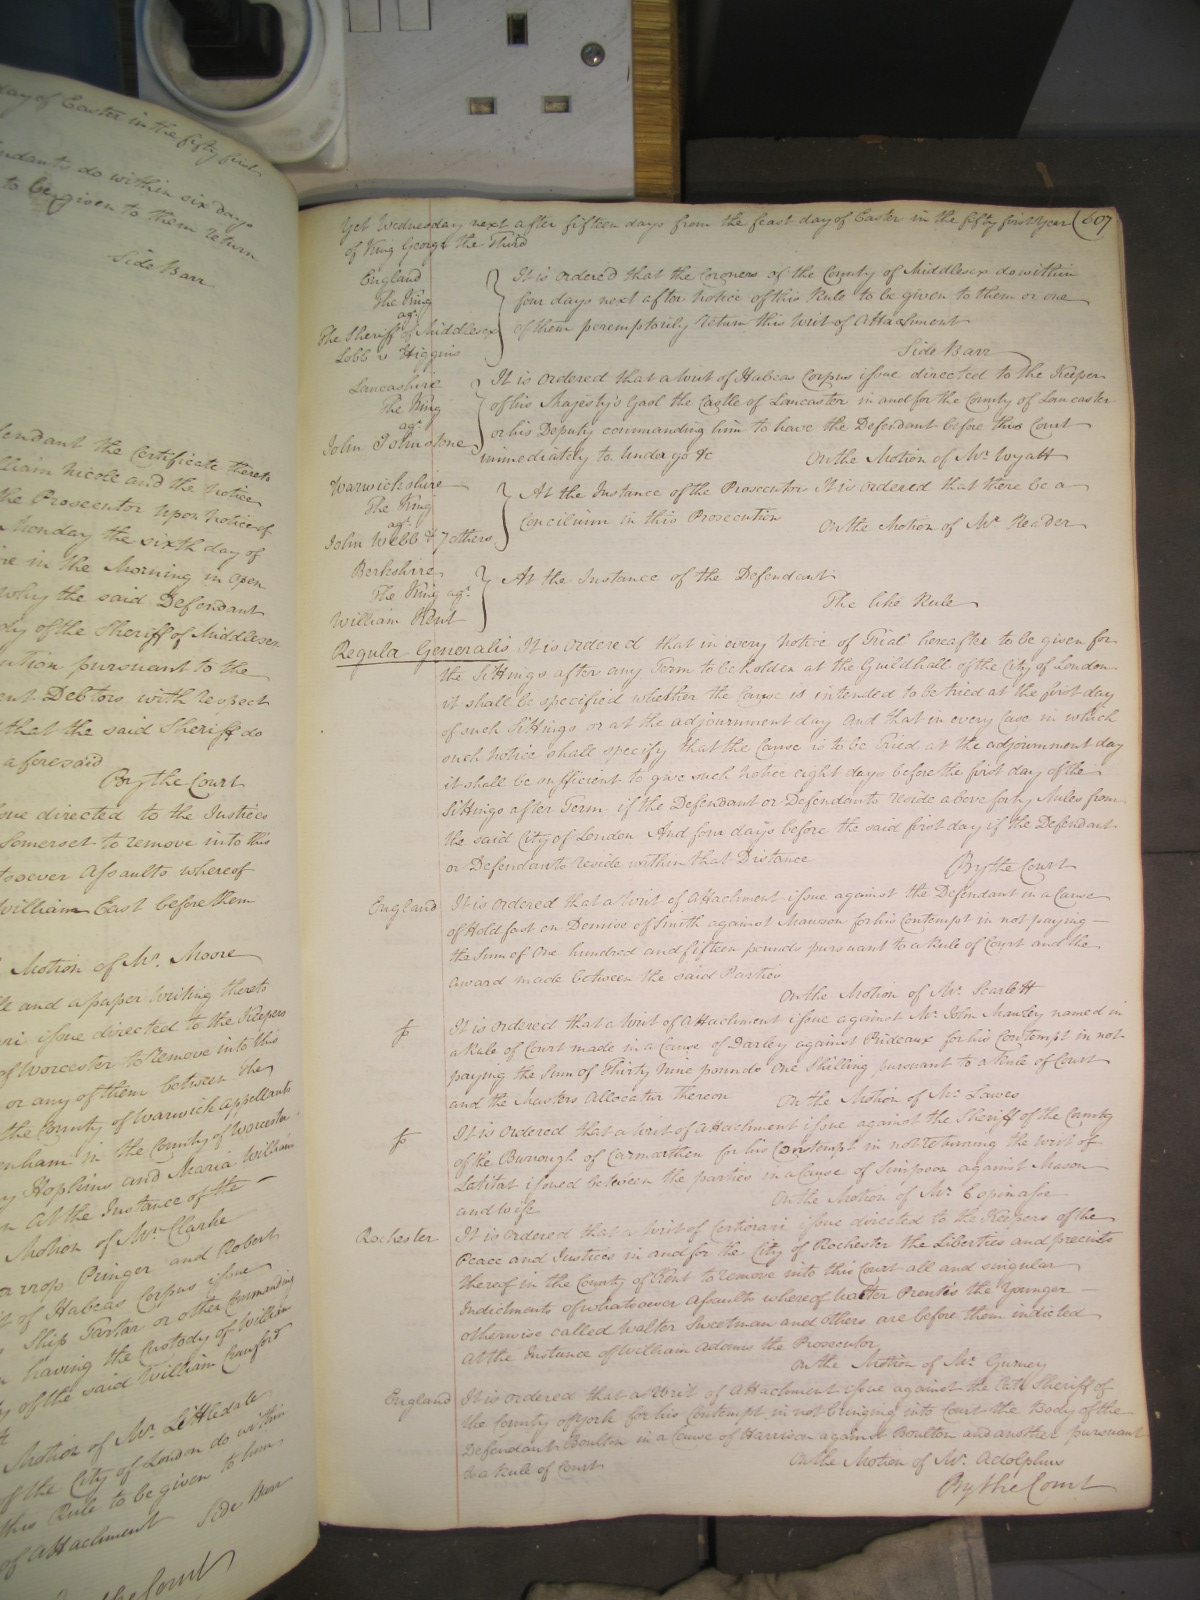 day of Easter in the fifty first
endants do within six days
to be given to them return
Side Barr
fendant the Certificate thereto
lliam Nicole and the Notice
the Prosecutor upon Notice of
Monday the sixth day of
in the Morning in open
why the said Defendant
dy of the Sheriff of Middlesex
ution pursuant to the
ent Debtors with respect
that the said Sheriff do
aforesaid
By the Court
sue directed to the Justices
Somerset to remove into this
tsoever Assaults whereof
William East before them
Motion of Mr. Moore
and a paper writing thereto
ari issue directed to the Keepers
of Worcester to remove into this
or any of them between the
the County of Warwick appellants
enham in the County of Worcester
y Hopkins and Maria William
n At the Instance of the
Motion of Mr Clarke
Pringer and Robert
t of Habeas Corpus issue
Ship Tartar or other Commanding
having the Custody of William
y of the said William Crawford
Motion of Mr Littledale
of the City of London do within
this Rule to be given to them
of Attachment Side Barr
the Court
Yet Wednesday next after fifteen days from the feast day of Easter in the fifty first Year (607
of King George the Third
England
The King
agt
The Sheriff of Middlesex
Lobb v Higgins
It is Ordered that the Coroners of the County of Middlesex do within
four days next after Notice of this Rule to be given to them or one
of them peremptorily return this Writ of Attachment
Side Barr
Lancashire
The King
agt
John Johnstone
It is Ordered that a Writ of Habeas Corpus issue directed to the Keeper
of his Majesty's Gaol the Castle of Lancaster in and for the County of Lancaster
or his Deputy commanding him to have the Defendant before this Court
immediately to undergo &c On the Motion of Mr Wyatt
Warwickshire
The King
agt
John Webb & 7 others
At the Instance of the Prosecutor It is ordered that there be a
Concilium in this Prosecution On the Motion of Mr Reader
Berkshire
The King agt
William Kent
At the Instance of the Defendant
The like Rule
Regula Generalis It is ordered that in every Notice of Trial hereafter to be given for
the Sittings after any Term to be holden at the Guildhall of the City of London
it shall be specified whether the Cause is intended to be tried at the first day
of such Sittings or at the adjournment day And that in every Case in which
such Notice shall specify that the Cause is to be Tried at the adjournment day
it shall be sufficient to give such Notice eight days before the first day of the
Sittings after Term if the Defendant or Defendants reside above forty Miles from
the said City of London And four days before the said first day if the Defendant
or Defendants reside within that Distance By the Court
England It is ordered that a Writ of Attachment issue against the Defendant in a Cause
of Holdfast on Demise of Smith against Mawson for his Contempt in not paying
the Sum of One hundred and fifteen pounds pursuant to a Rule of Court and the
Award made between the said Parties
On the Motion of Mr Scarlett
It is Ordered that a Writ of Attachment issue against Mr. John Manley named in
a Rule of Court made in a Cause of Darley against Prideaux for his Contempt in not
paying the Sum of Thirty Nine pounds One Shilling pursuant to a Rule of Court
and the Masters Allocatur thereon On the Motion of Mr Lawes
It is Ordered that a Writ of Attachment issue against the Sheriff of the County
of the Burrough of Carmarthen for his Contempt in not returning the Writ of
Latitat issued between the parties in a Cause of Simpson against Mason
and Wife On the Motion of Mr Espinasse
Rochester It is ordered that a Writ of Certiorari issue directed to the Keepers of the
Peace and Justices in and for the City of Rochester the Liberties and precincts
thereof in the County of Kent to remove into this Court all and singular
Indictments of whatsoever Assaults whereof Walter Prentis the Younger
otherwise called Walter Sweetman and others are before them indicted
At the Instance of William Adams the Prosecutor
On the Motion of Mr Gurney
England It is ordered that a Writ of Attachment issue against the late Sheriff of
the County of York for his Contempt in not bringing into Court the Body of the
Defendant Boulton in a Cause of Harrison against Boulton and another pursuant
to a Rule of Court On the Motion of Mr Adolphus
By the Court